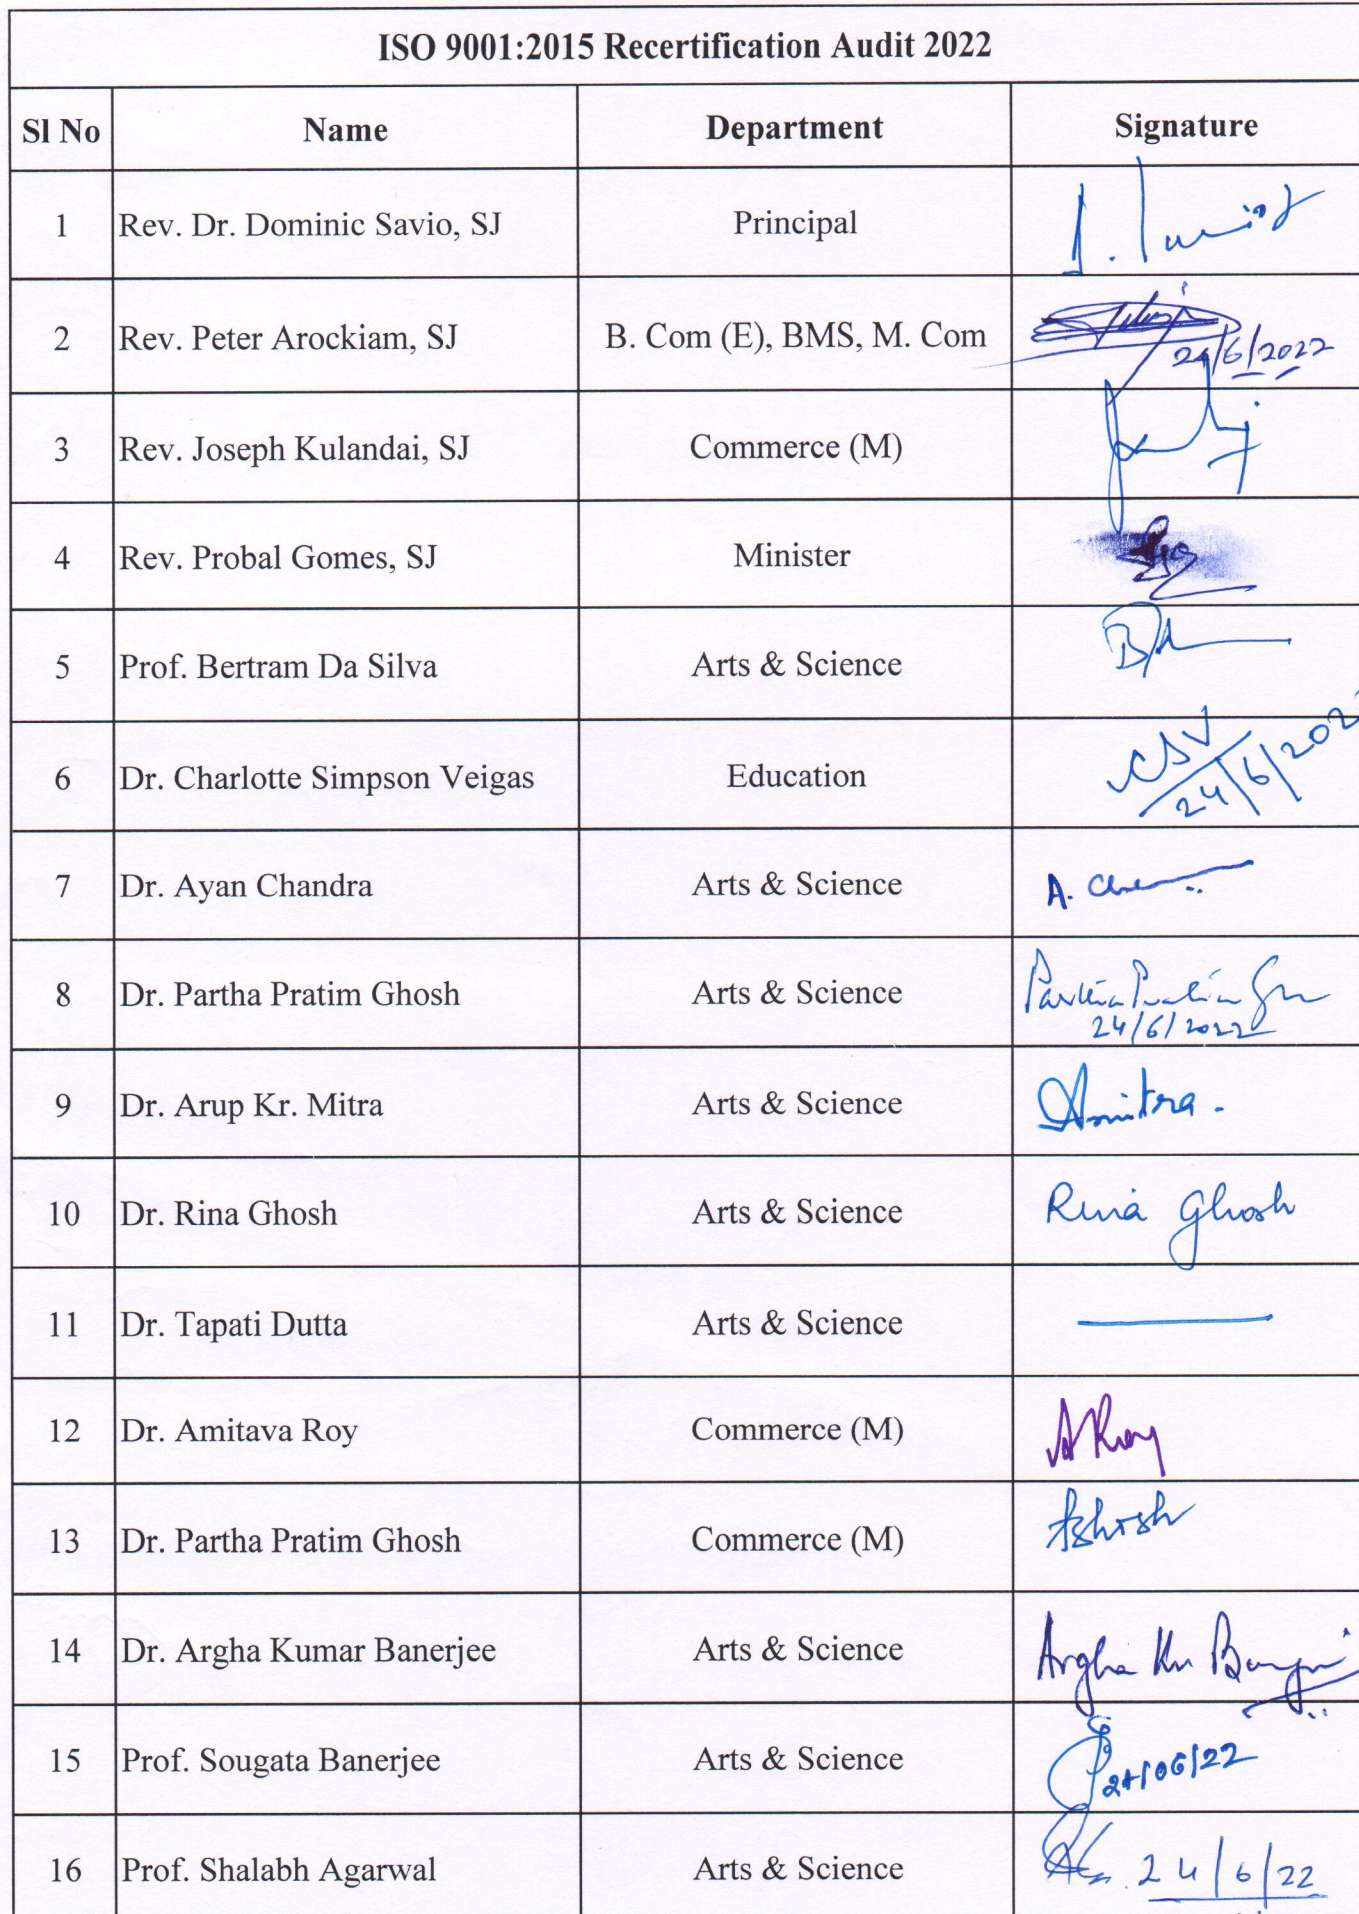 ISO 9001:2015 Recertification Audit 2022
Sl No Name Department Signature
1 Rev. Dr. Dominic Savio, SJ Principal
2 Rev. Peter Arockiam, SJ B. Com (E), BMS, M. Com
24/6/2022
3 Rev. Joseph Kulandai, SJ Commerce (M)
4 Rev. Probal Gomes, SJ Minister
5 Prof. Bertram Da Silva Arts & Science
6 Dr. Charlotte Simpson Veigas Education CSV
24/6/202
7 Dr. Ayan Chandra Arts & Science A.
8 Dr. Partha Pratim Ghosh Arts & Science Partha Pratim
24/6/2022
9 Dr. Arup Kr. Mitra Arts & Science Amitra.
10 Dr. Rina Ghosh Arts & Science Rina Ghosh
11 Dr. Tapati Dutta Arts & Science
12 Dr. Amitava Roy Commerce (M) ARoy
13 Dr. Partha Pratim Ghosh Commerce (M)
14 Dr. Argha Kumar Banerjee Arts & Science Argha Kr Banerjee
15 Prof. Sougata Banerjee Arts & Science 24/06/22
16 Prof. Shalabh Agarwal Arts & Science 24/6/22